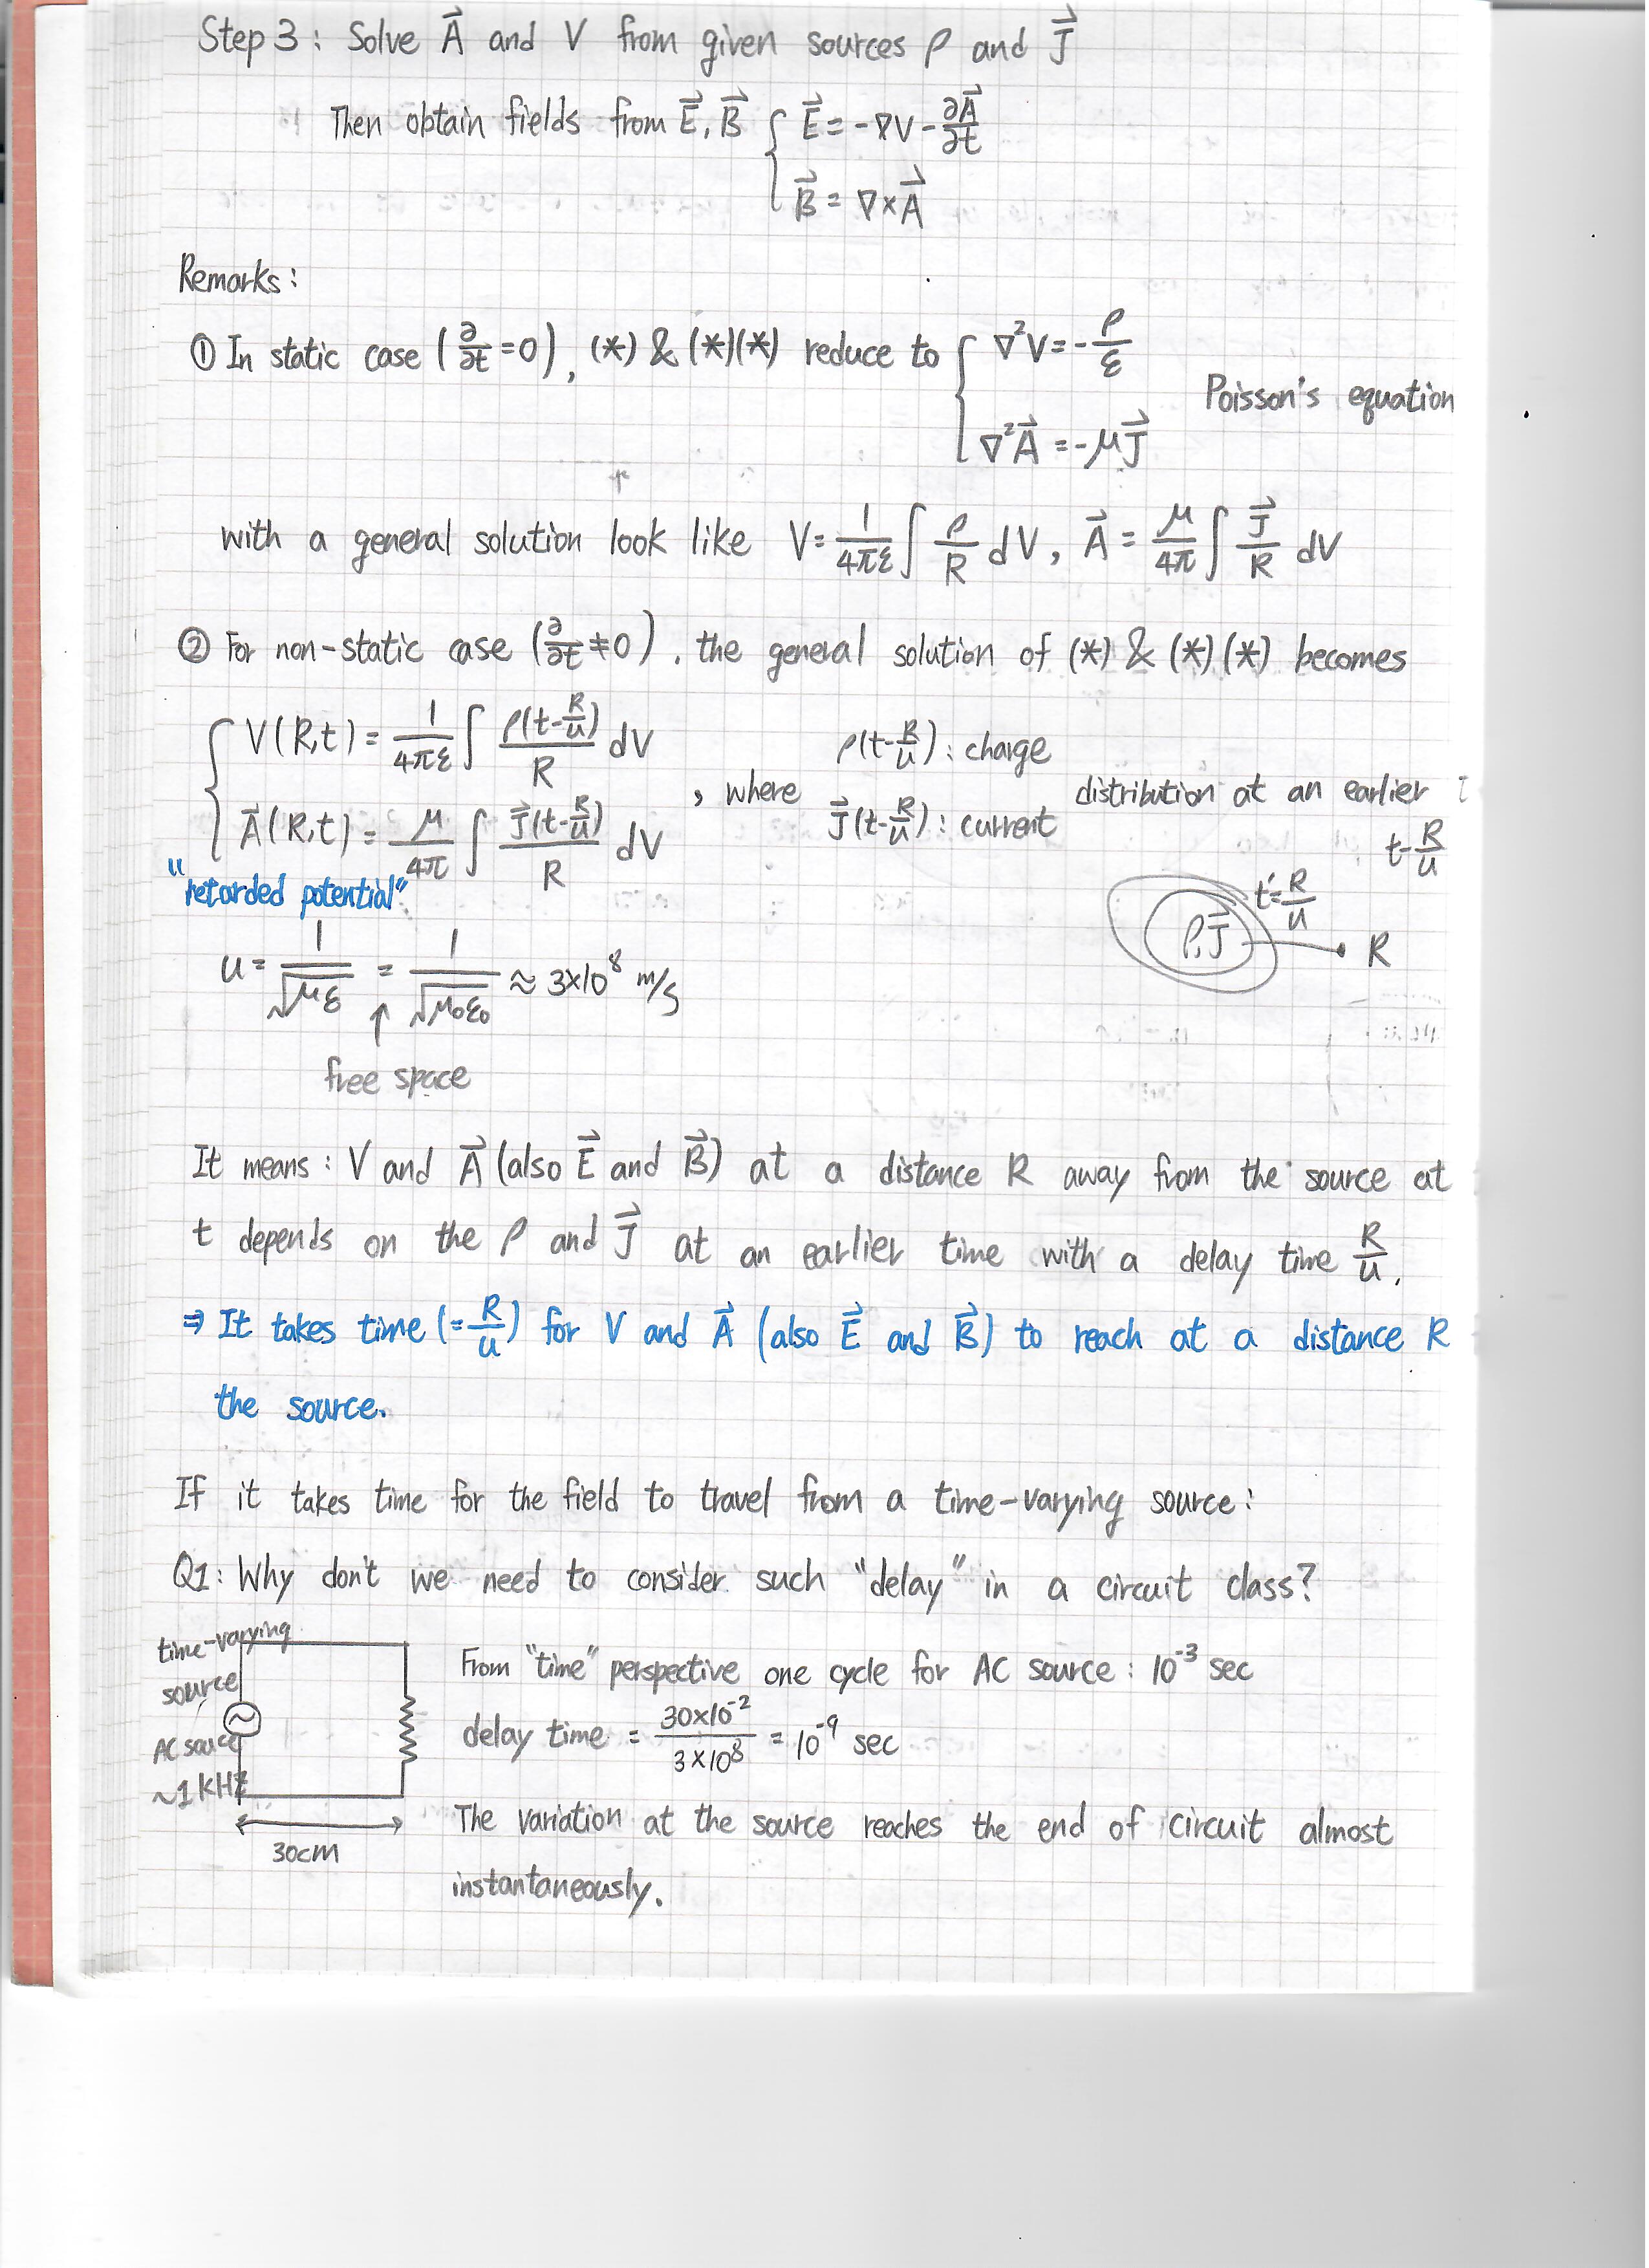 Step 3 : Solve A⃗ and V from given sources ρ and J⃗
Then obtain fields from E⃗, B⃗ { E⃗ = -∇V - ∂A⃗/∂t
B⃗ = ∇×A⃗
Remarks :
① In static case (∂/∂t = 0), (*) & (*)(*) reduce to { ∇²V = -ρ/ε
∇²A⃗ = -μJ⃗
Poisson's equation
with a general solution look like V = 1/4πε ∫ ρ/R dV, A⃗ = μ/4π ∫ J⃗/R dV
② For non-static case (∂/∂t ≠ 0), the general solution of (*) & (*)(*) becomes
V(R,t) = 1/4πε ∫ ρ(t-R/u)/R dV
A⃗(R,t) = μ/4π ∫ J⃗(t-R/u)/R dV
, where
ρ(t-R/u) : charge
J⃗(t-R/u) : current
distribution at an earlier
t-R/u
"retarded potential"
t' = R/u
ρ, J⃗
R
u = 1/√με = 1/√μ₀ε₀ ≈ 3×10⁸ m/s
↑
free space
It means : V and A⃗ (also E⃗ and B⃗) at a distance R away from the source at
t depends on the ρ and J⃗ at an earlier time with a delay time R/u.
⇒ It takes time (=R/u) for V and A⃗ (also E⃗ and B⃗) to reach at a distance R
the source.
If it takes time for the field to travel from a time-varying source :
Q1 : Why don't we need to consider such "delay" in a circuit class?
time-varying
source
AC source
~1 kHz
30cm
From "time" perspective one cycle for AC source : 10⁻³ sec
delay time = 30×10⁻²/3×10⁸ = 10⁻⁹ sec
The variation at the source reaches the end of circuit almost
instantaneously.